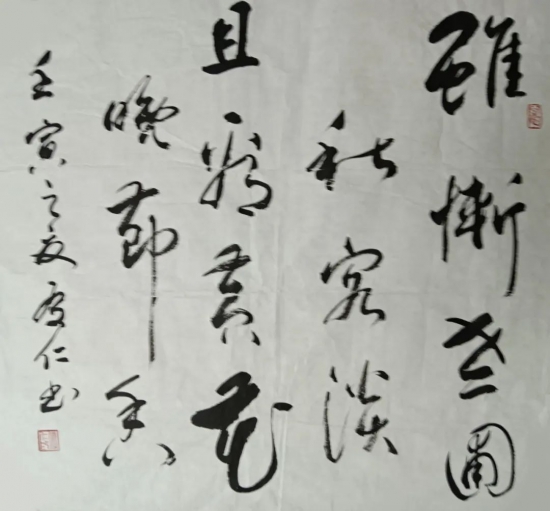 雖慚老圃
秋容淡
且看黄花
晚節香
壬寅之夏仁书